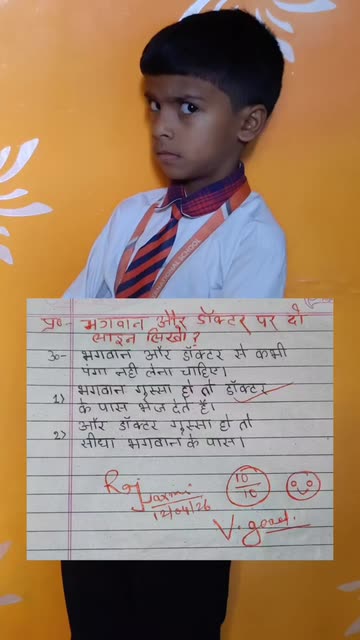 प्र०- भगवान और डॉक्टर पर दो
लाइन लिखो?
उ०- भगवान और डॉक्टर से कभी
पंगा नही लेना चाहिए।
1) भगवान गुस्सा हो तो डॉक्टर
के पास भेज देते है।
2) और डॉक्टर गुस्सा हो तो
सीधा भगवान के पास।
Raj
Laxmi
12/04/26
10
10
V. good.